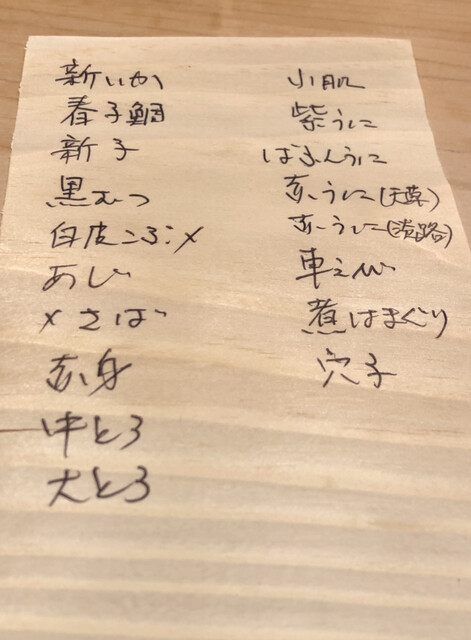 新いか
春子鯛
新子
黒むつ
白皮こぶ〆
あじ
〆さば
赤身
中とろ
大とろ
小肌
紫うに
ばふんうに
赤うに(天草)
赤うに(淡路)
車えび
煮はまぐり
穴子